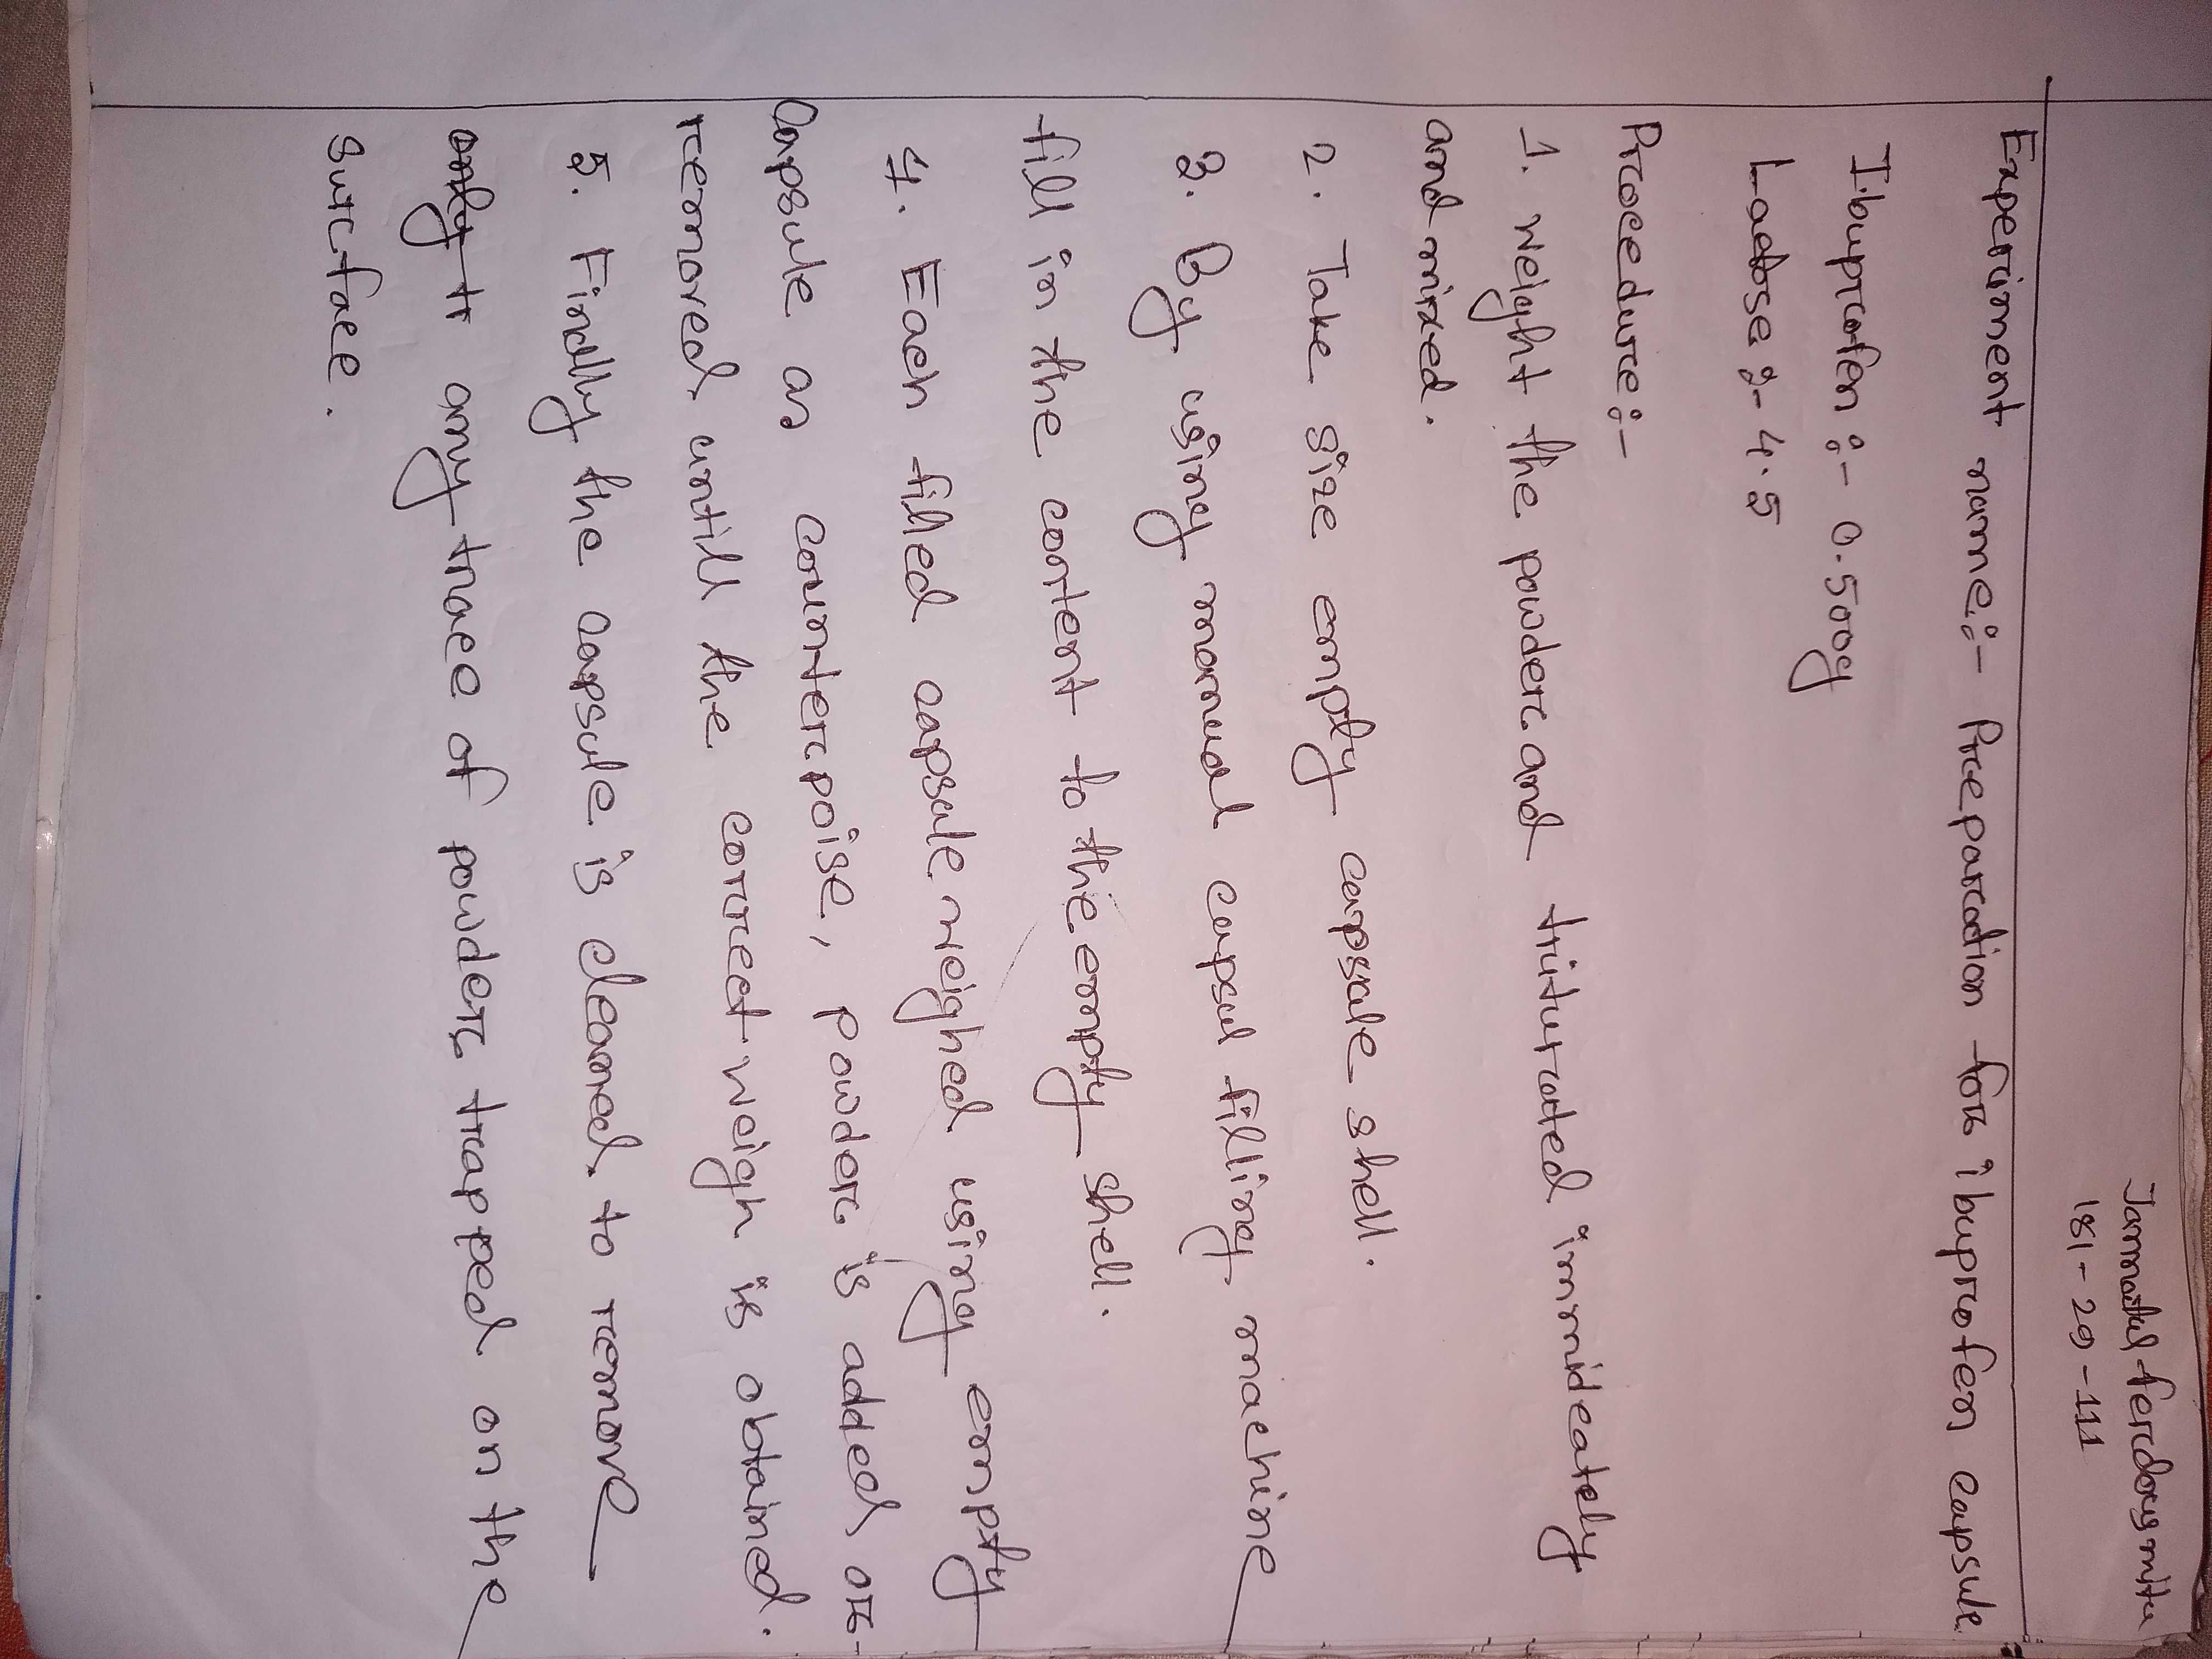 Jannatul ferdous mitu
181-29-111
Experiment name:- Preparation for ibuprofen capsule
Ibuprofen:- 0.500g
Lactose:- 4.5
Procedure:-
1. weight the powder and triturated immideately
and mixed.
2. Take size empty capsule shell.
3. By using manual capsul filling machine
fill in the content to the empty shell.
4. Each filled capsule weighed using empty
Capsule as counterpoise, powder is added or
removed untill the correct weigh is obtained.
5. Finally the capsule is cleaned to remove
any trace of powder trapped on the
surface.